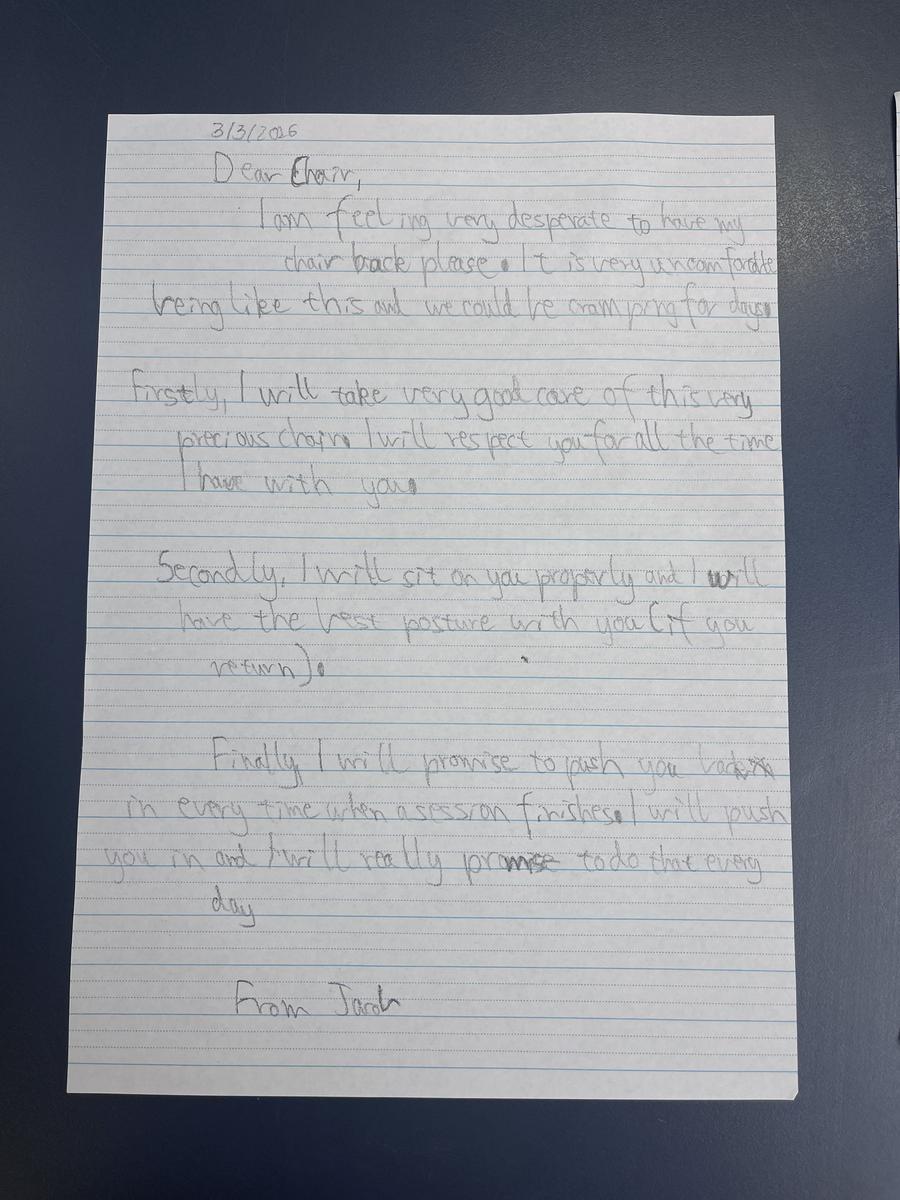 3/3/2026
Dear Chair,
I am feeling very desperate to have my
chair back please. It is very uncomfortable
being like this and we could be cramping for days.
Firstly, I will take very good care of this very
precious chair. I will respect you for all the time
I have with you.
Secondly, I will sit on you properly and I will
have the best posture with you (if you
return).
Finally, I will promise to push you back
in every time when a session finishes. I will push
you in and I will really promise to do that every
day
From Jacob